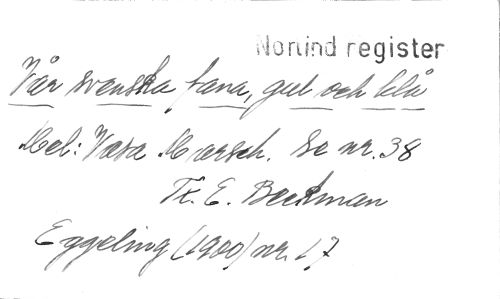 Norlind register
Vår svenska fana, gul och blå
Mel: Vasa Marsch. Se nr. 38
Tx. E. Beckman
Eggeling (1900) nr. 17